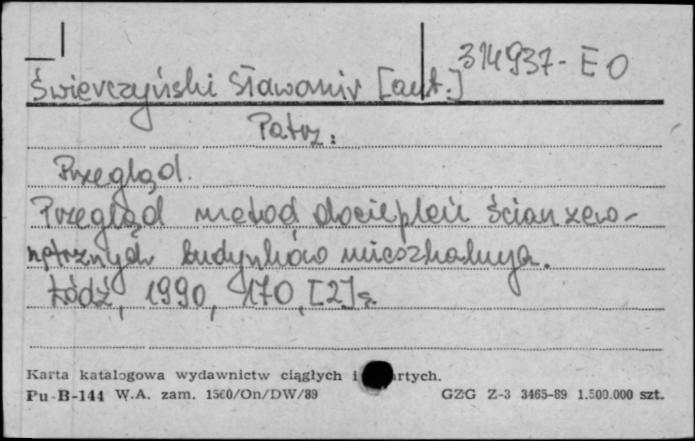 314937-E O
Świerczyński Sławomir [aut.]
Patrz:
Przegląd.
Przegląd metod dociepleń ścian zew-
nętrznych budynków mieszkalnych.
Łódź, 1990, 170, [2] s.
Karta katalogowa wydawnictw ciągłych i artych.
Pu-B-144 W.A. zam. 1560/On/DW/89 GZG Z-3 3465-89 1.500.000 szt.